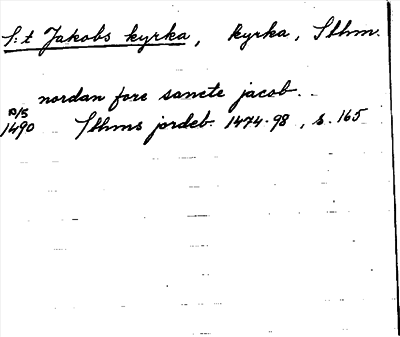 S:t Jakobs kyrka, kyrka, Sthm.
nordan fore sancte jacob...
10/5
1490 Sthms jordeb. 1474-98, s. 165